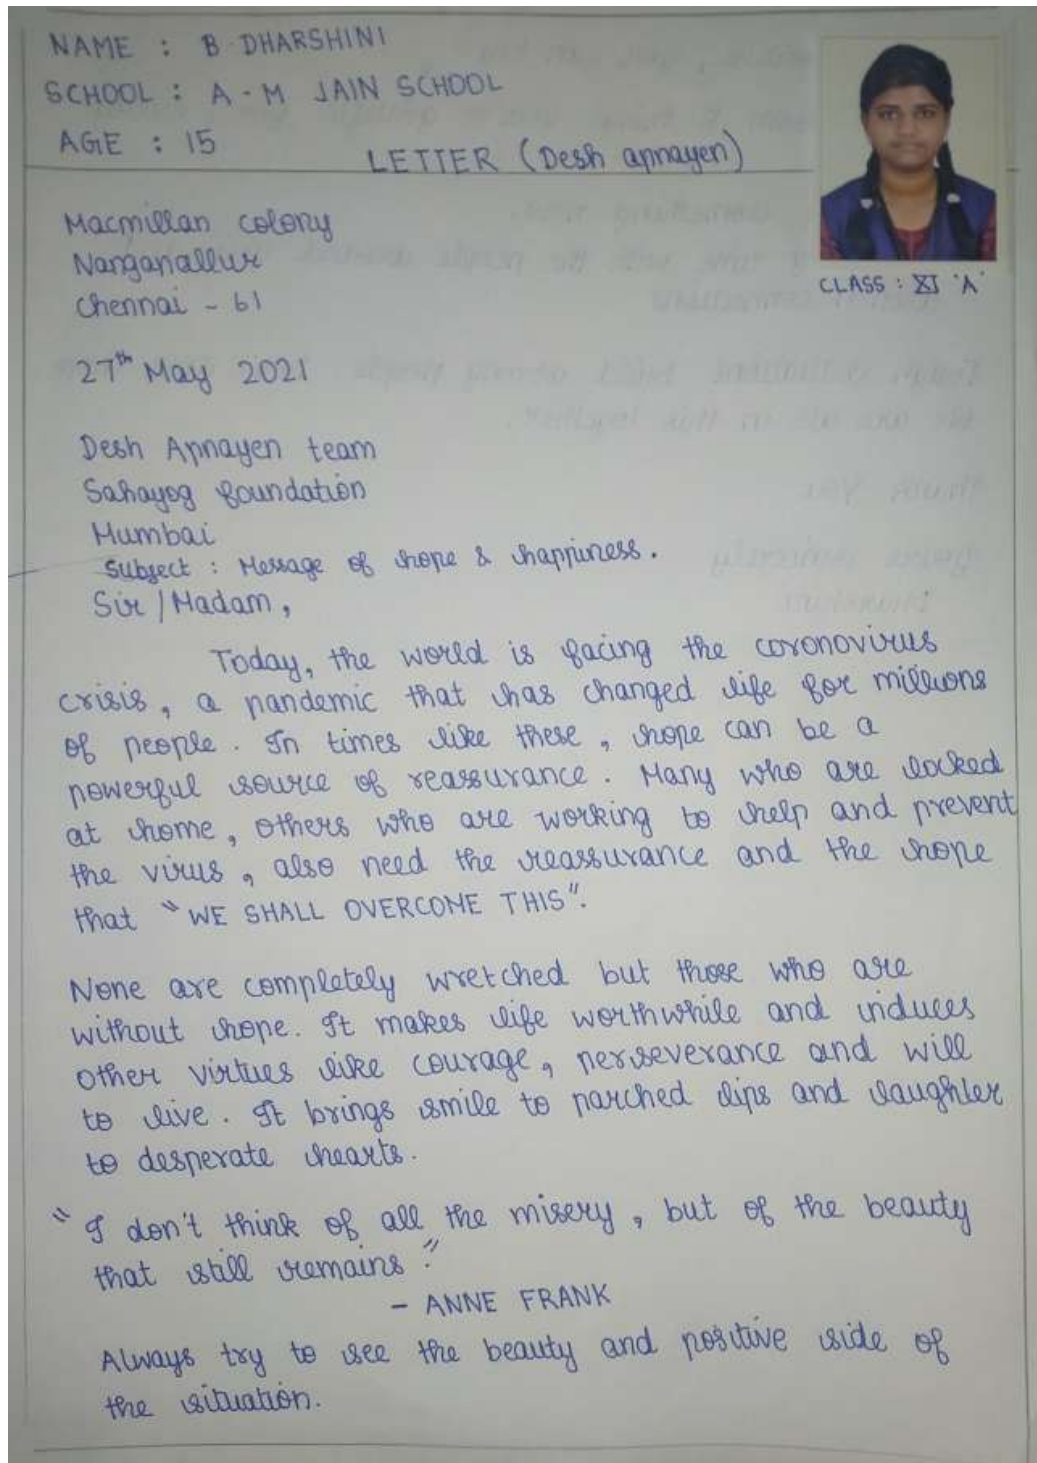 NAME : B. DHARSHINI
SCHOOL : A.M JAIN SCHOOL
AGE : 15
LETTER (Desh apnayen)
CLASS : XI 'A'
Macmillan colony
Nanganallur
Chennai - 61
27th May 2021
Desh Apnayen team
Sahayog foundation
Mumbai
Subject : Message of hope & happiness.
Sir / Madam,
Today, the world is facing the coronovirus
crisis, a pandemic that has changed life for millions
of people. In times like these, hope can be a
powerful source of reassurance. Many who are locked
at home, others who are working to help and prevent
the virus, also need the reassurance and the hope
that "WE SHALL OVERCOME THIS".
None are completely wretched but those who are
without hope. It makes life worthwhile and induces
other virtues like courage, perseverance and will
to live. It brings smile to parched lips and laughter
to desperate hearts.
"I don't think of all the misery, but of the beauty
that still remains."
- ANNE FRANK
Always try to see the beauty and positive side of
the situation.